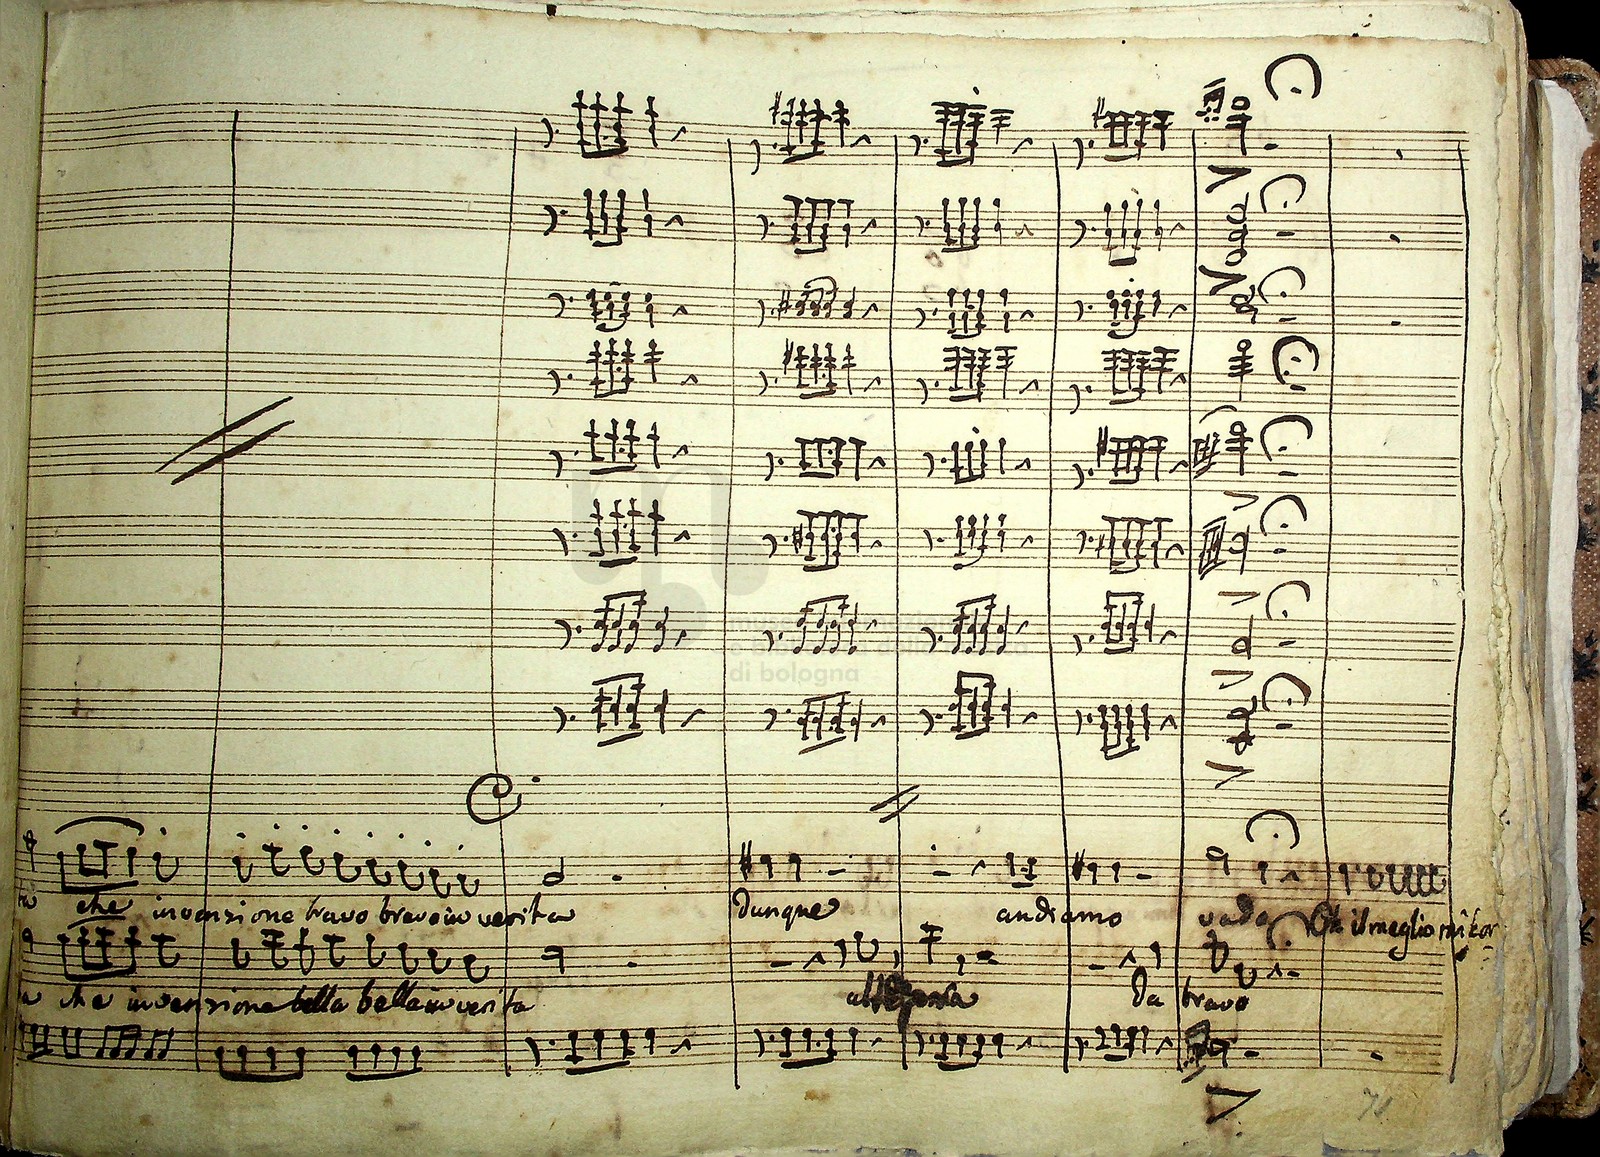 museo internazionale
e biblioteca della musica
di bologna
che invenzione bravo bravo in verita
Dunque andiamo vado il meglio mi
che invenzione bella bella in verita
Da bravo
71